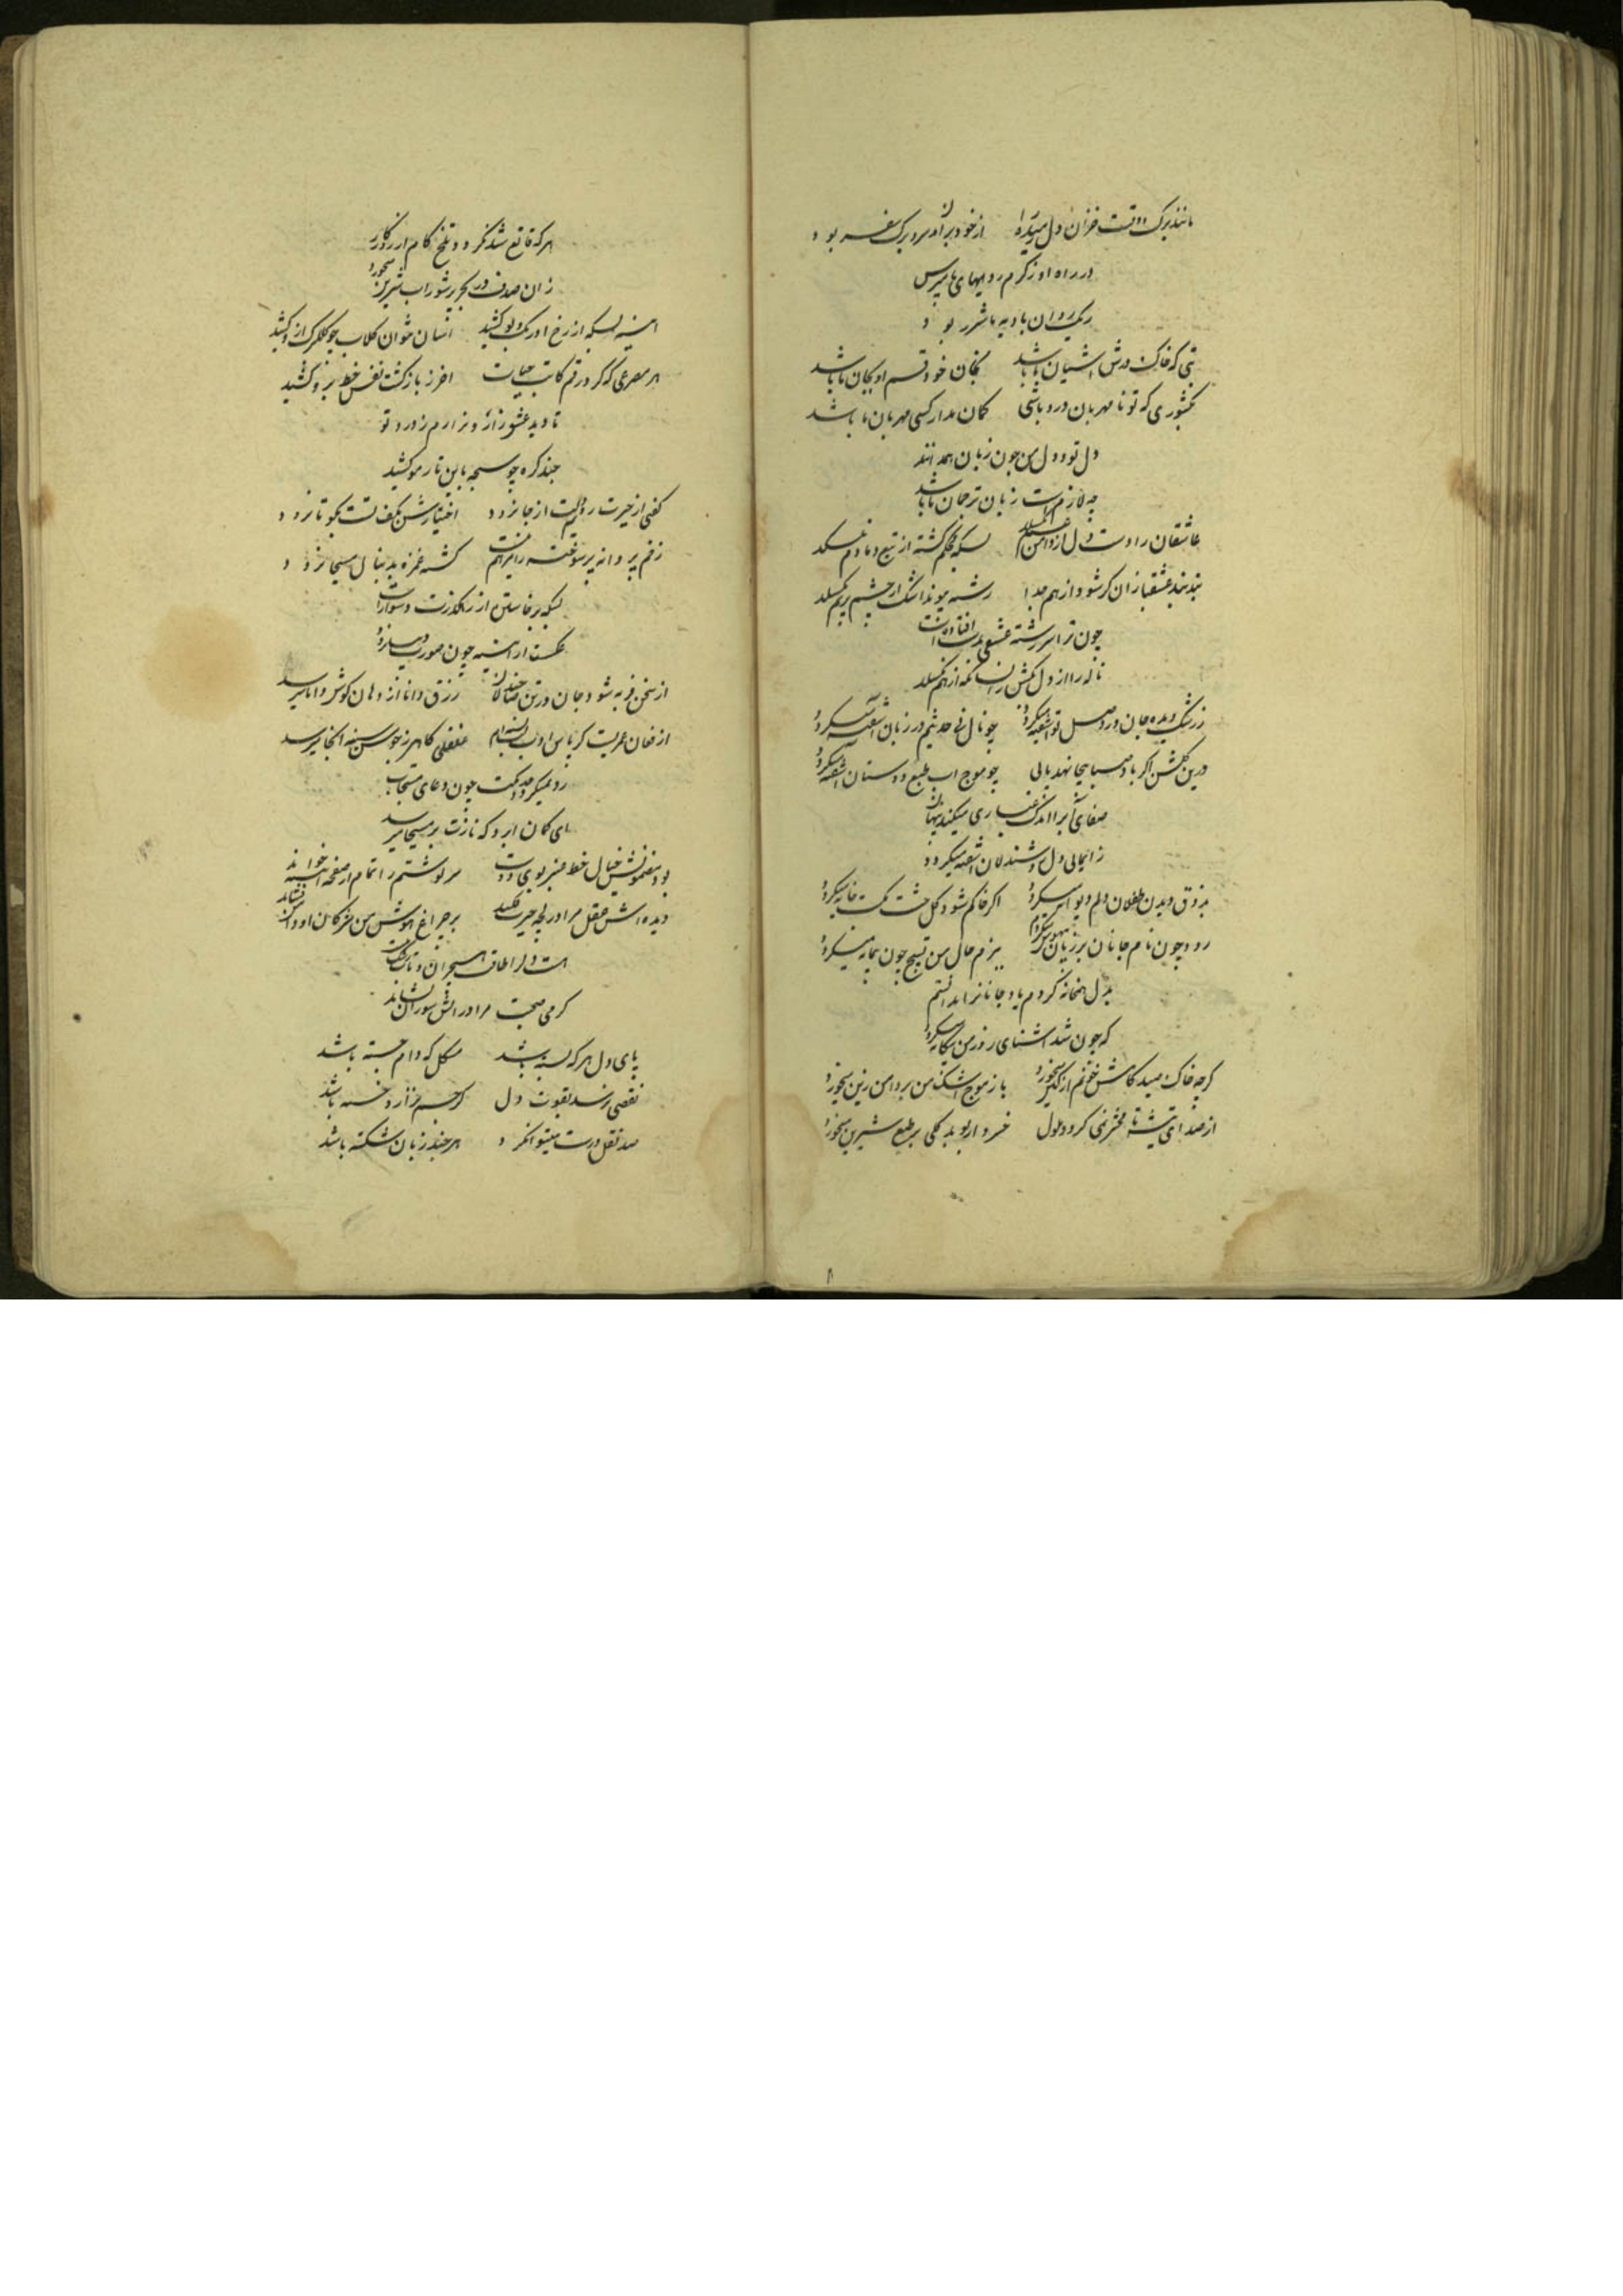 مانند برک دل از خود برآمد سرو برک سفر بود
در راه او ز کرم رویهای ما مپرس
ریک روان بادیه ما شرر بود
بتی که خاک درش اشیان ما باشد بجان خود قسم او بجان ما باشد
بکشوری که تو نامهربان درو باشی کمان مدار کسی مهربان ما باشد
دل تو و دل من چون زبان همدانند
چه لازمست زبان ترجمان ما باشد
عاشقان را دست دل از دامن نمیکسلد بسکه محکم کشته از تیغ دمادم نکسلد
بند بند عشقبازان کر شود از هم جدا رشته پیوند اشک از چشم پر نم نکسلد
چون ترا سررشته عشقی بدست افتاده است
ناله را از دل بکش زانسان که از هم نکسلد
ز رشک دیده جان در وصل تو اشفته میکردد چو نال نی حدیثم در زبان اشفته میکردد
درین کلشن اکر باد صبا بیجا نهد پایی چو موج اب طبع دوستان اشفته میکردد
صفای آب را اندک غباری میکند پنهان
ز ایمایی دل روشندلان اشفته میکردد
بذوق دیدن طفلان دلم دیوانه میکردد اکر خاکم شود کل خشت مکتب خانه میکردد
رود چون نام جانان بر زبان بیهوش میکردم ببزم حال من تسبیح چون پیمانه میکردد
بدل همخانه کردم یاد جانانرا ندانستم
که چون شد اشنای روز من بیکانه میکردد
کرچه خاک صیدکاهش خونم از کین میخورد باز موج اشک من بر دامن زین میخورد
از صدای تیشه تا محشر نمی کردد ملول خسرو ار بوید کلی بر طبع شیرین میخورد
هر که قانع شد نکردد تلخ کام از روزکار
زان صدف در بحر پر شور اب شیرین میخورد
اینه بسکه از رخ او رنک و بو کشید اسان توان کلاب چو کلبرک ازو کشید
هر مصرعی که کر در قم کاتب حیات اخر ز بازکشت نفس خط برو کشید
تا دید عشق زار و نزارم ز درد تو
چند کره چو سبحه باین تار مو کشید
کفی از خیرت از جا نرود اختیارش بکف تست بکو تا نرود
زخم پروانه پرسوخته را مرهم نیست کشته غمزه بدنبال مسیحا نرود
بسکه برخاستن از رهکذرت دشوارست
عکست از اینه چون صورت دیبا نرود
از سخن فربه شود جان در تن رزق دانا از دهان کوش دانا میرسد
از فغان عمریست کر پاس ادب لب بسته ام غلغلی کاهی ز جوش سینه انجا میرسد
رد نمیکردد خدنکت چون دعای مستجاب
ای کمان ابرو که نازت بر مسیحا میرسد
بود مضمونش خیال خط عنبر بوی دوست سرنوشتم را تمام از صفحه اینه خواند
دیده اش عقل مرا در لجه حیرت فکند بر چراغ هوش من مژکان او دامن فشاند
هست دل را طاقت هجران و تاب وصل نیست
کرمی صحبت مرا در اتش سوزان نشاند
پای دل هر که بسته باشد مشکل که ز دام جسته باشد
نقصی نرسد بقوت دل کر جسم نزار و خسته باشد
صد نقل درست میتوان کرد هر چند زبان شکسته باشد